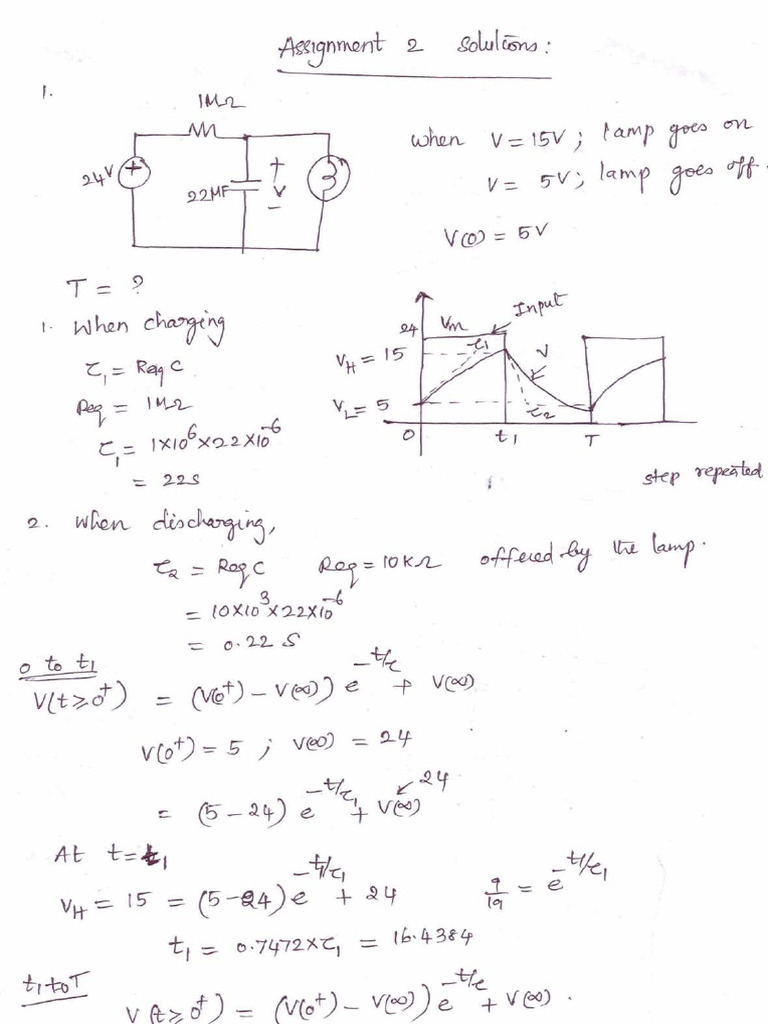 Assignment 2 Solutions:
1.
1MΩ
24V
+
22MF
+
V
-
when V = 15V ; lamp goes on
V = 5V ; lamp goes off.
V(0) = 5V
T = ?
1. When charging
τ₁ = Req C
Req = 1MΩ
τ₁ = 1×10⁶×22×10⁻⁶
= 22S
Input
24 Vm
τ₁
VH = 15
V
VL = 5
τ₂
0 t₁ T
step repeated
2. When discharging,
τ₂ = Req C Req = 10KΩ offered by the lamp.
= 10×10³×22×10⁻⁶
= 0.22 S
0 to t₁
V(t≥0⁺) = (V(0⁺) - V(∞)) e^-t/τ + V(∞)
V(0⁺) = 5 ; V(∞) = 24
= (5-24) e^-t/τ₁ + V(∞) ↙ 24
At t=t₁
VH = 15 = (5-24) e^-t₁/τ₁ + 24 9/19 = e^-t₁/τ₁
t₁ = 0.7472×τ₁ = 16.4384
t₁ to T
V(t≥0⁺) = (V(0⁺) - V(∞)) e^-t/τ + V(∞).